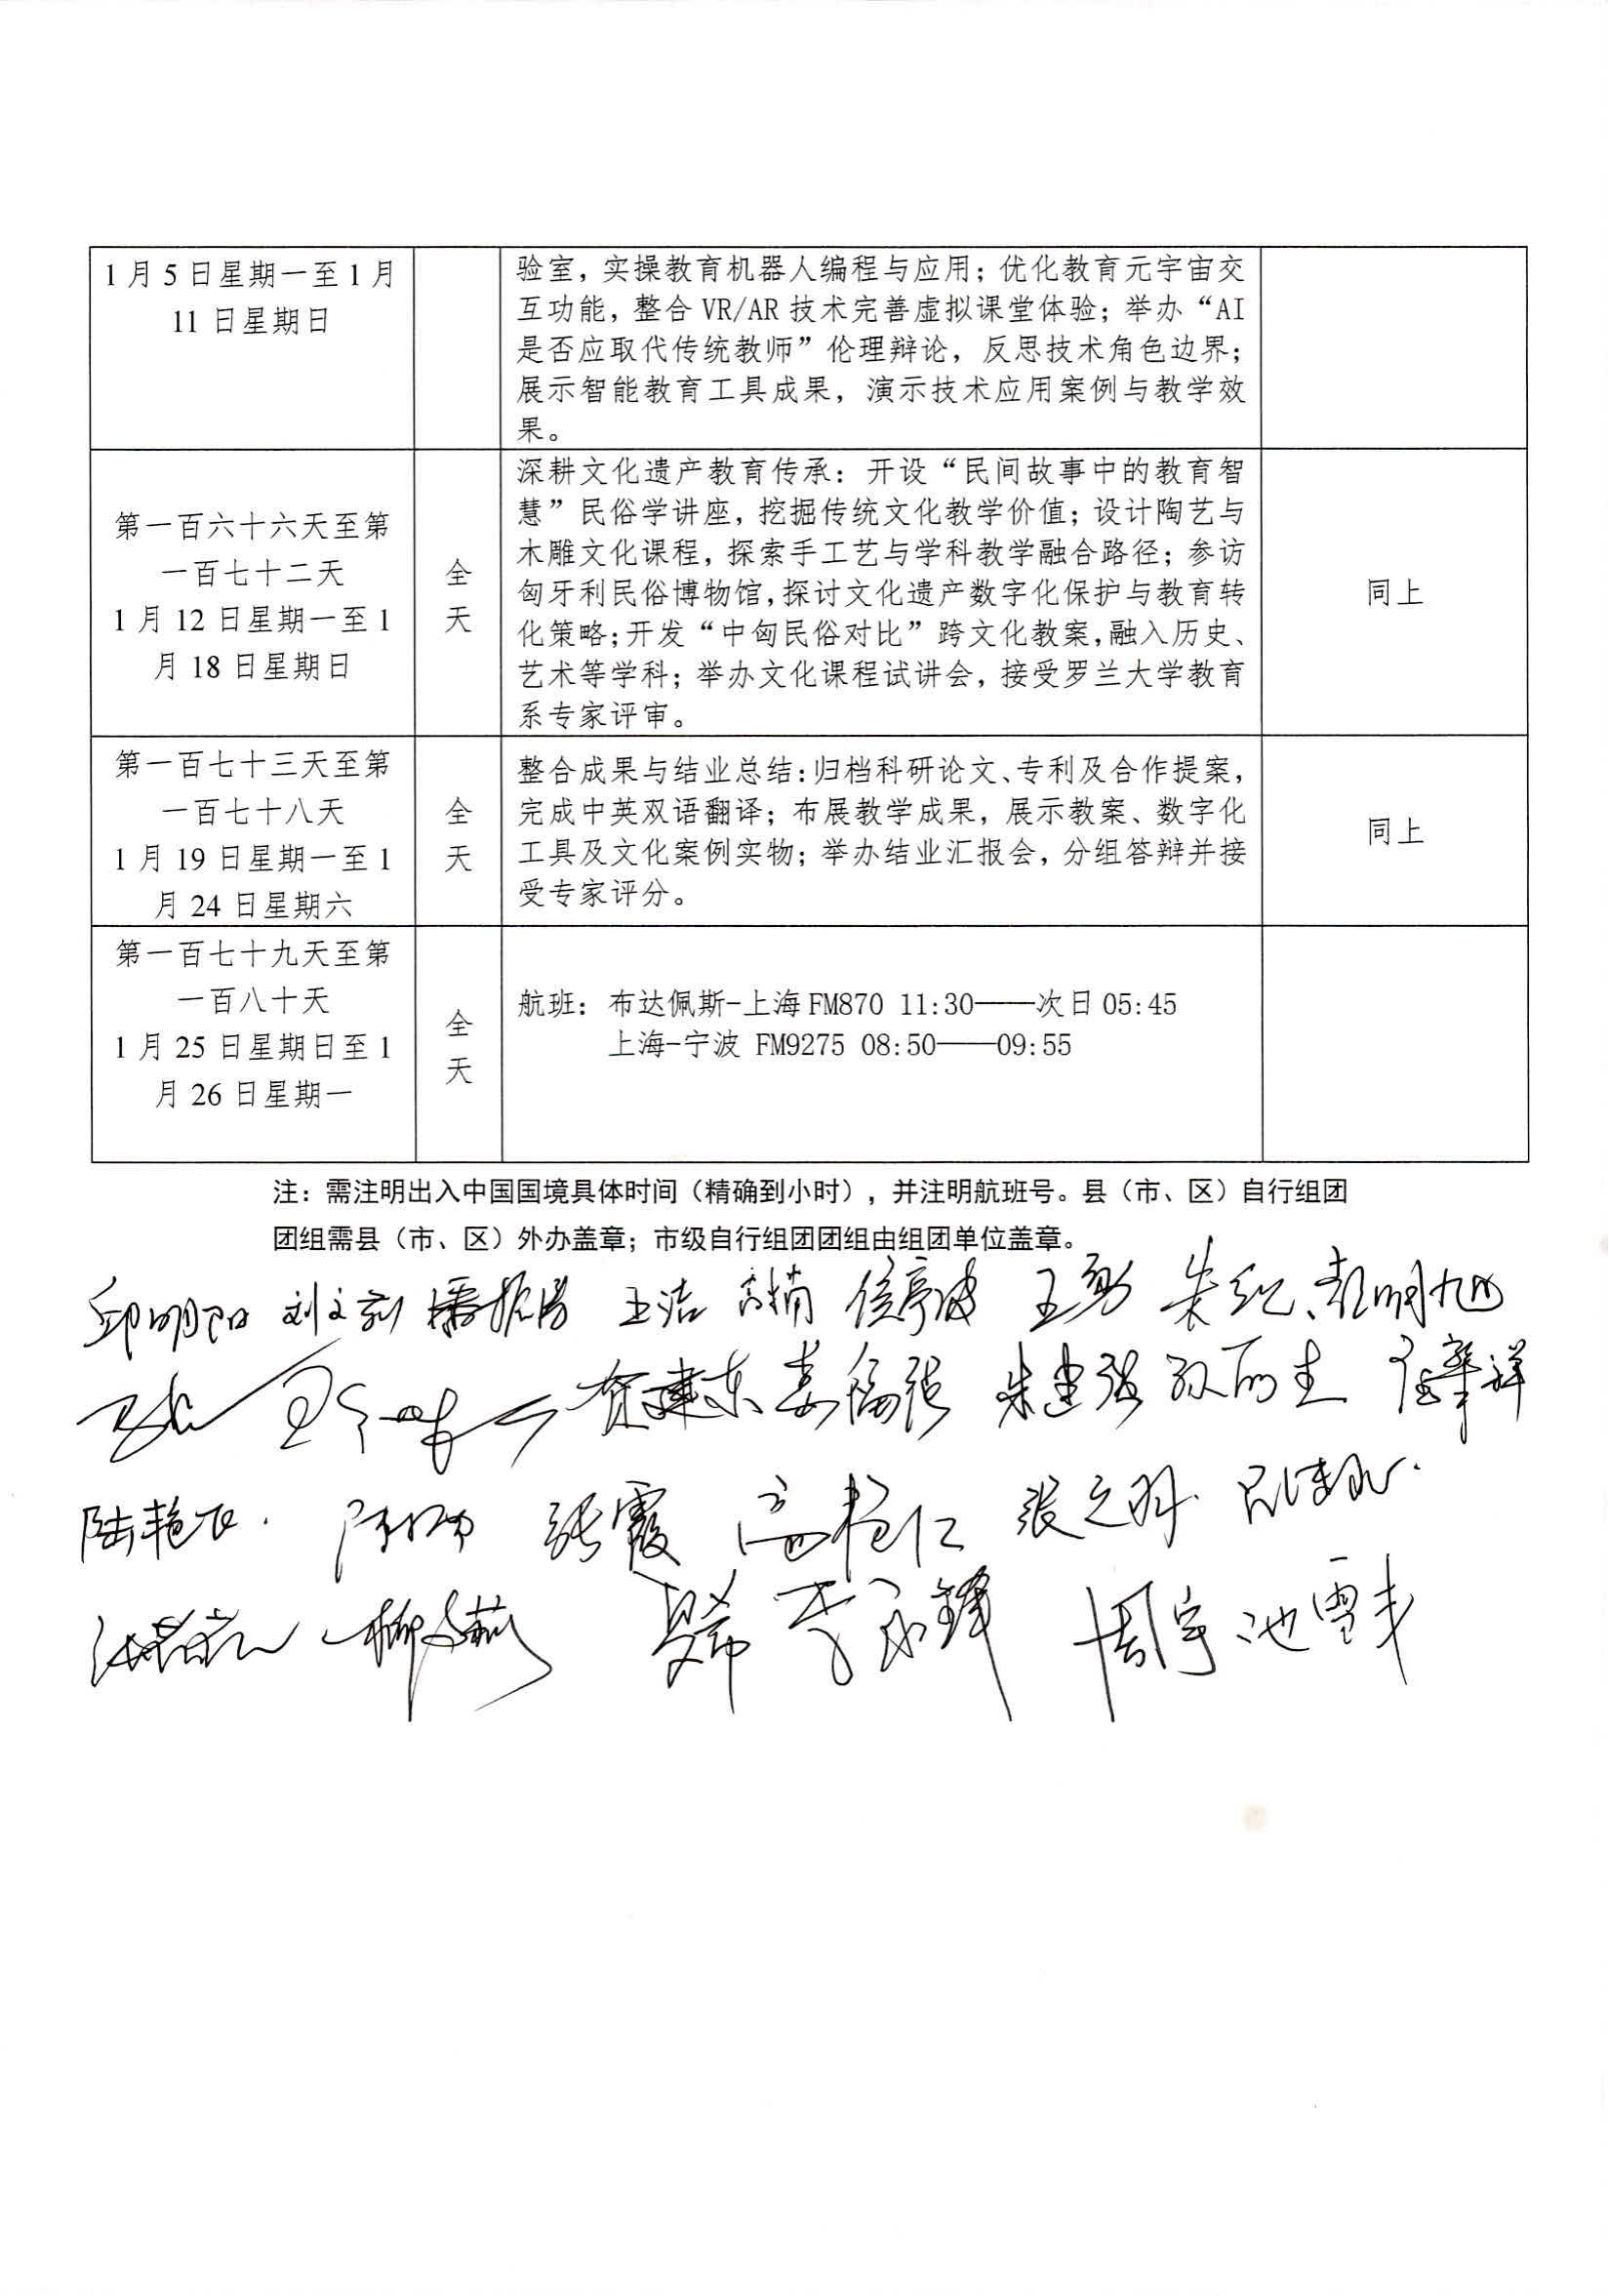 1月5日星期一至1月
11日星期日
验室，实操教育机器人编程与应用；优化教育元宇宙交
互功能，整合VR/AR技术完善虚拟课堂体验；举办“AI
是否应取代传统教师”伦理辩论，反思技术角色边界；
展示智能教育工具成果，演示技术应用案例与教学效
果。
第一百六十六天至第
一百七十二天
1月12日星期一至1
月18日星期日
全
天
深耕文化遗产教育传承：开设“民间故事中的教育智
慧”民俗学讲座，挖掘传统文化教学价值；设计陶艺与
木雕文化课程，探索手工艺与学科教学融合路径；参访
匈牙利民俗博物馆，探讨文化遗产数字化保护与教育转
化策略；开发“中匈民俗对比”跨文化教案，融入历史、
艺术等学科；举办文化课程试讲会，接受罗兰大学教育
系专家评审。
同上
第一百七十三天至第
一百七十八天
1月19日星期一至1
月24日星期六
全
天
整合成果与结业总结：归档科研论文、专利及合作提案，
完成中英双语翻译；布展教学成果，展示教案、数字化
工具及文化案例实物；举办结业汇报会，分组答辩并接
受专家评分。
同上
第一百七十九天至第
一百八十天
1月25日星期日至1
月26日星期一
全
天
航班：布达佩斯-上海FM870 11:30——次日05:45
上海-宁波 FM9275 08:50——09:55
注：需注明出入中国国境具体时间（精确到小时），并注明航班号。县（市、区）自行组团
团组需县（市、区）外办盖章；市级自行组团团组由组团单位盖章。
邱明阳 王洁 王勇 彭明旭
贺建东 朱建强
陆艳飞 张霞
李永锋 周宇 池雪